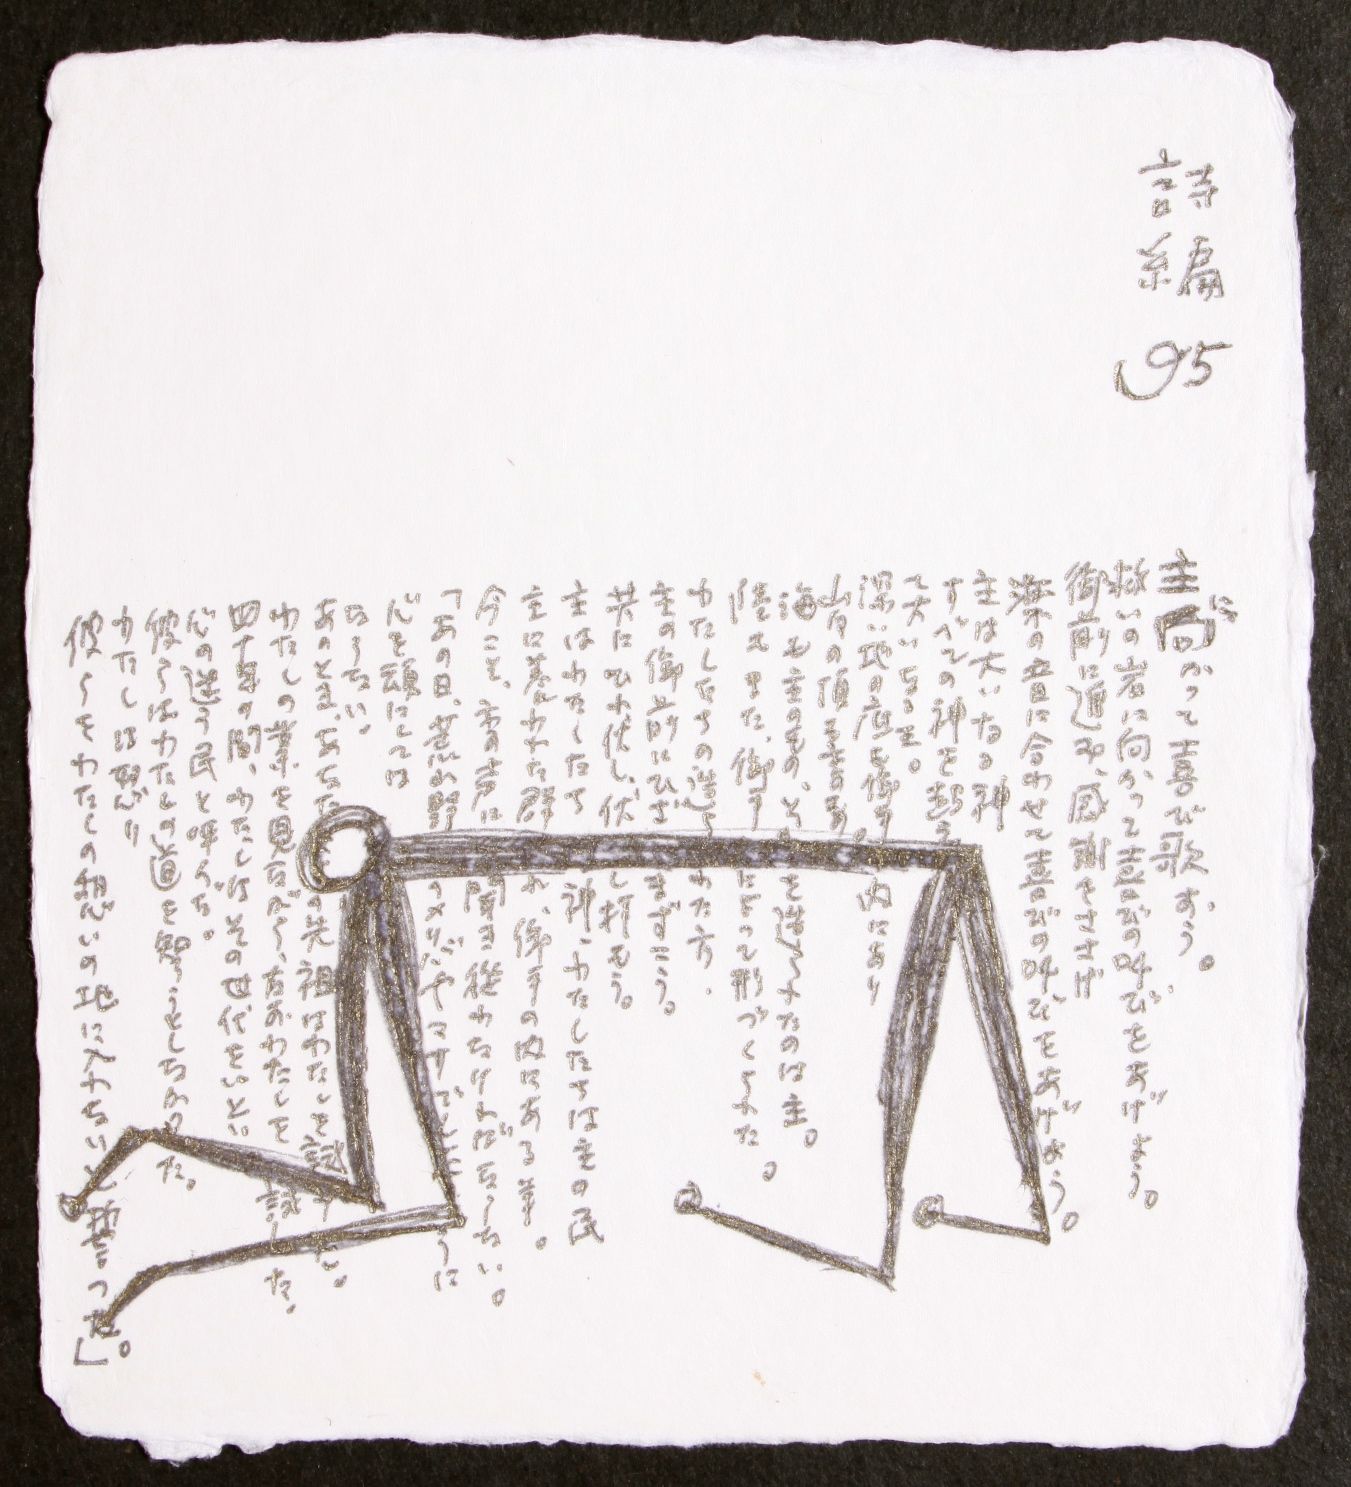 詩編 95
主に向かって喜び歌おう。
救いの岩に向かって喜びの叫びをあげよう。
御前に進み、感謝をささげ
楽の音に合わせて喜びの叫びをあげよう。
主は大いなる神
すべての神を超え
て大いなる王。
深い地の底も御手の内にあり
山々の頂も主のもの。
海も主のもの、それを造られたのは主。
陸もまた、御手によって形づくられた。
わたしたちの造られた方、
主の御前にひざまずこう。
共にひれ伏し、伏し拝もう。
主はわたしたちの神、わたしたちは主の民
主に養われた群れ、御手の内にある羊。
今こそ、主の声に聞き従わなければならない。
「あの日、荒れ野のメリバやマサでしたように
心を頑にしては
ならない。
あのとき、あなたたちの先祖はわたしを試みた。
わたしの業を見ながら、なおわたしを試した。
四十年の間、わたしはその世代をいとい
心の迷う民と呼んだ。
彼らはわたしの道を知ろうとしなかった。
わたしは怒り
彼らをわたしの憩いの地に入れないと誓った。」